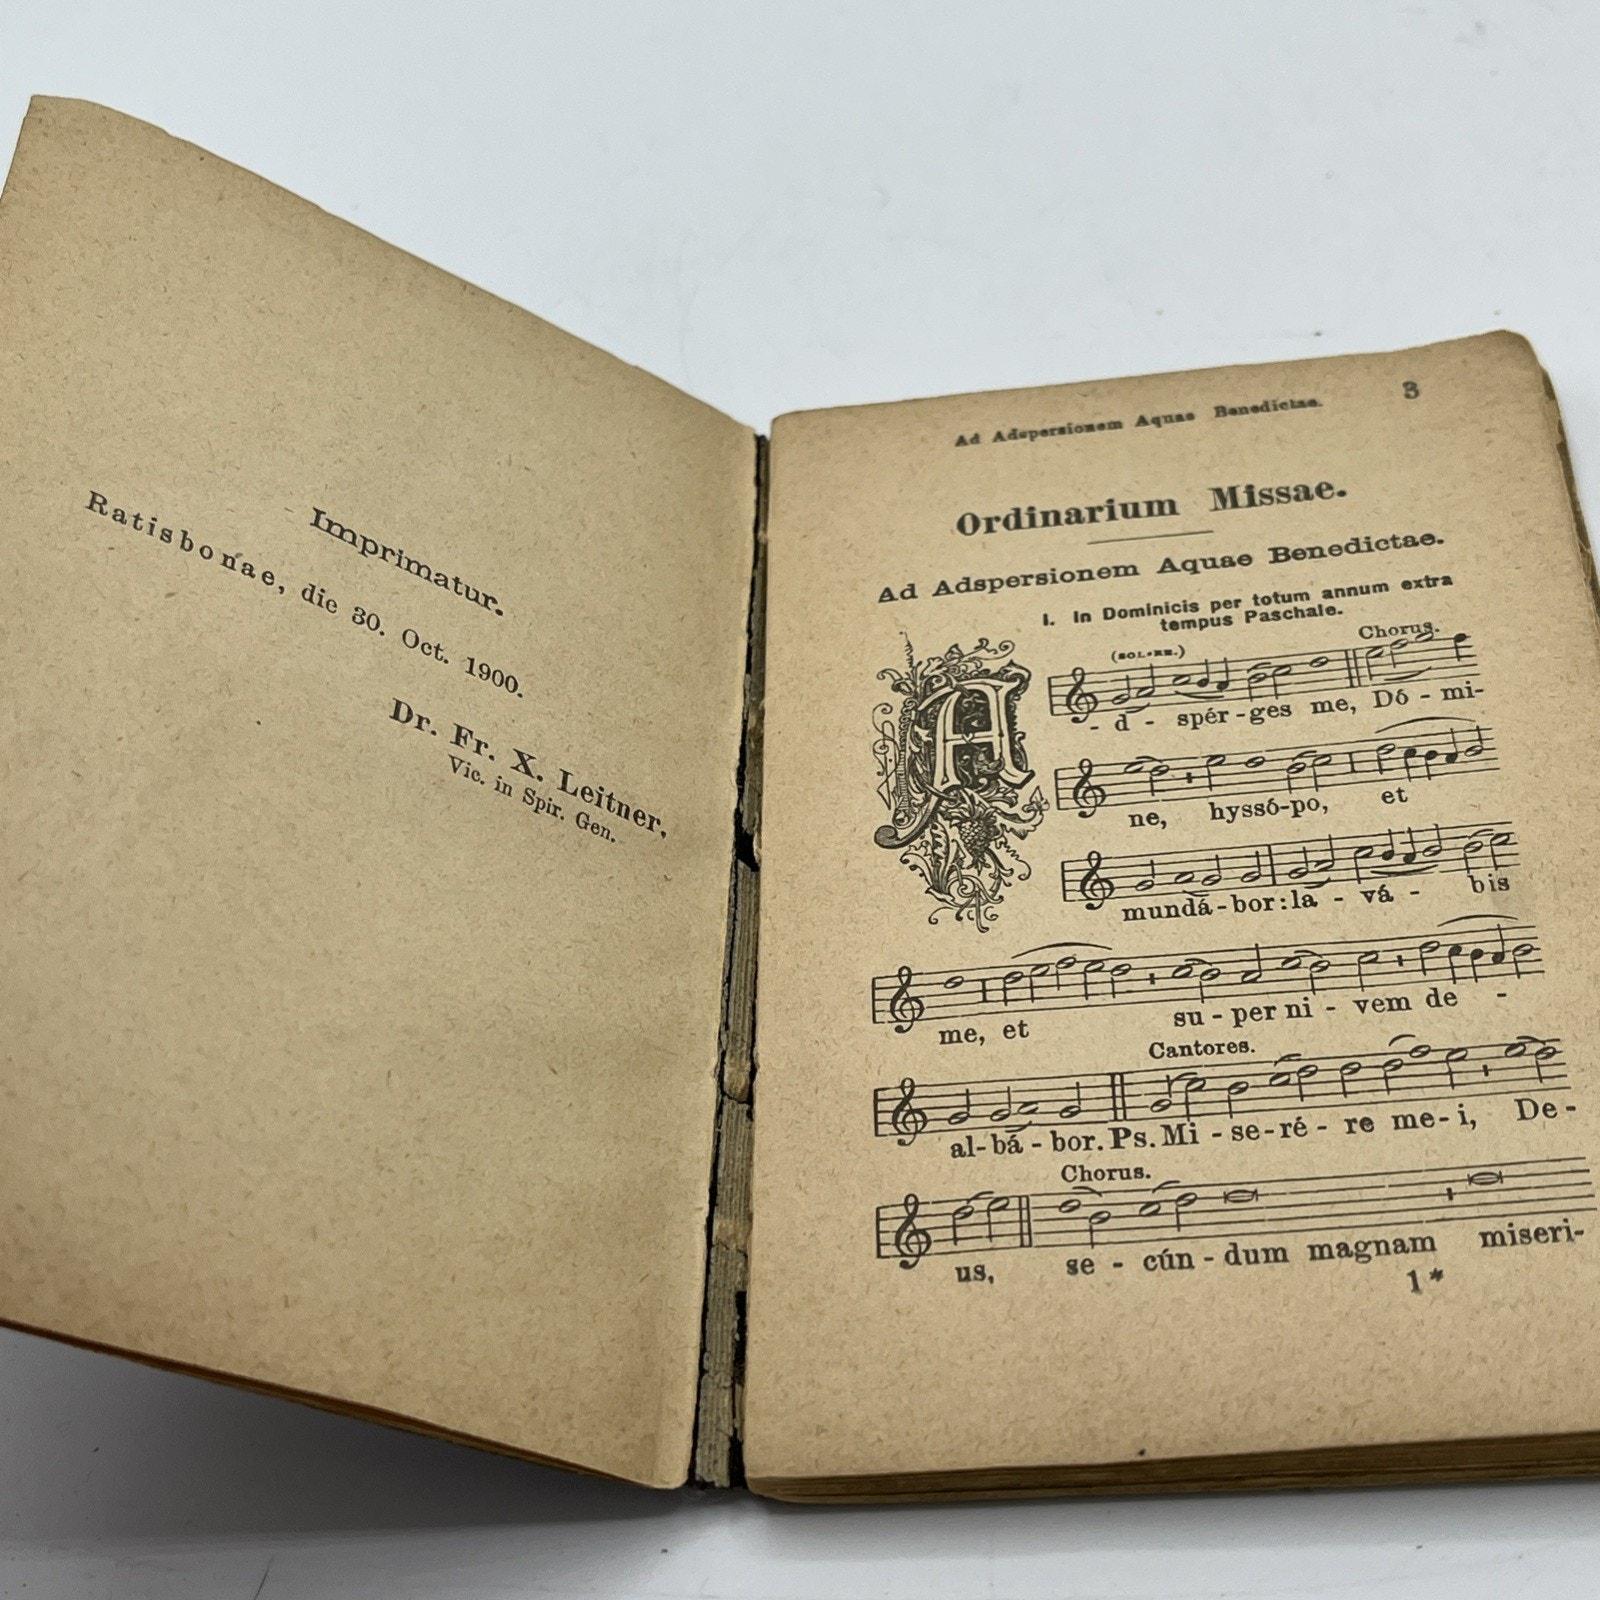 Imprimatur.
Ratisbonae, die 30. Oct. 1900.
Dr. Fr. X. Leitner,
Vic. in Spir. Gen.
Ad Adspersionem Aquae Benedictae. 3
Ordinarium Missae.
Ad Adspersionem Aquae Benedictae.
I. In Dominicis per totum annum extra
tempus Paschale.
(SOL-RE.) Chorus.
A - d - spér - ges me, Dó - mi-
ne, hyssó-po, et
mundá-bor: la - vá - bis
me, et su - per ni - vem de -
Cantores.
al-bá - bor. Ps. Mi - se-ré - re me- i, De-
Chorus.
us, se - cún - dum magnam miseri-
1*